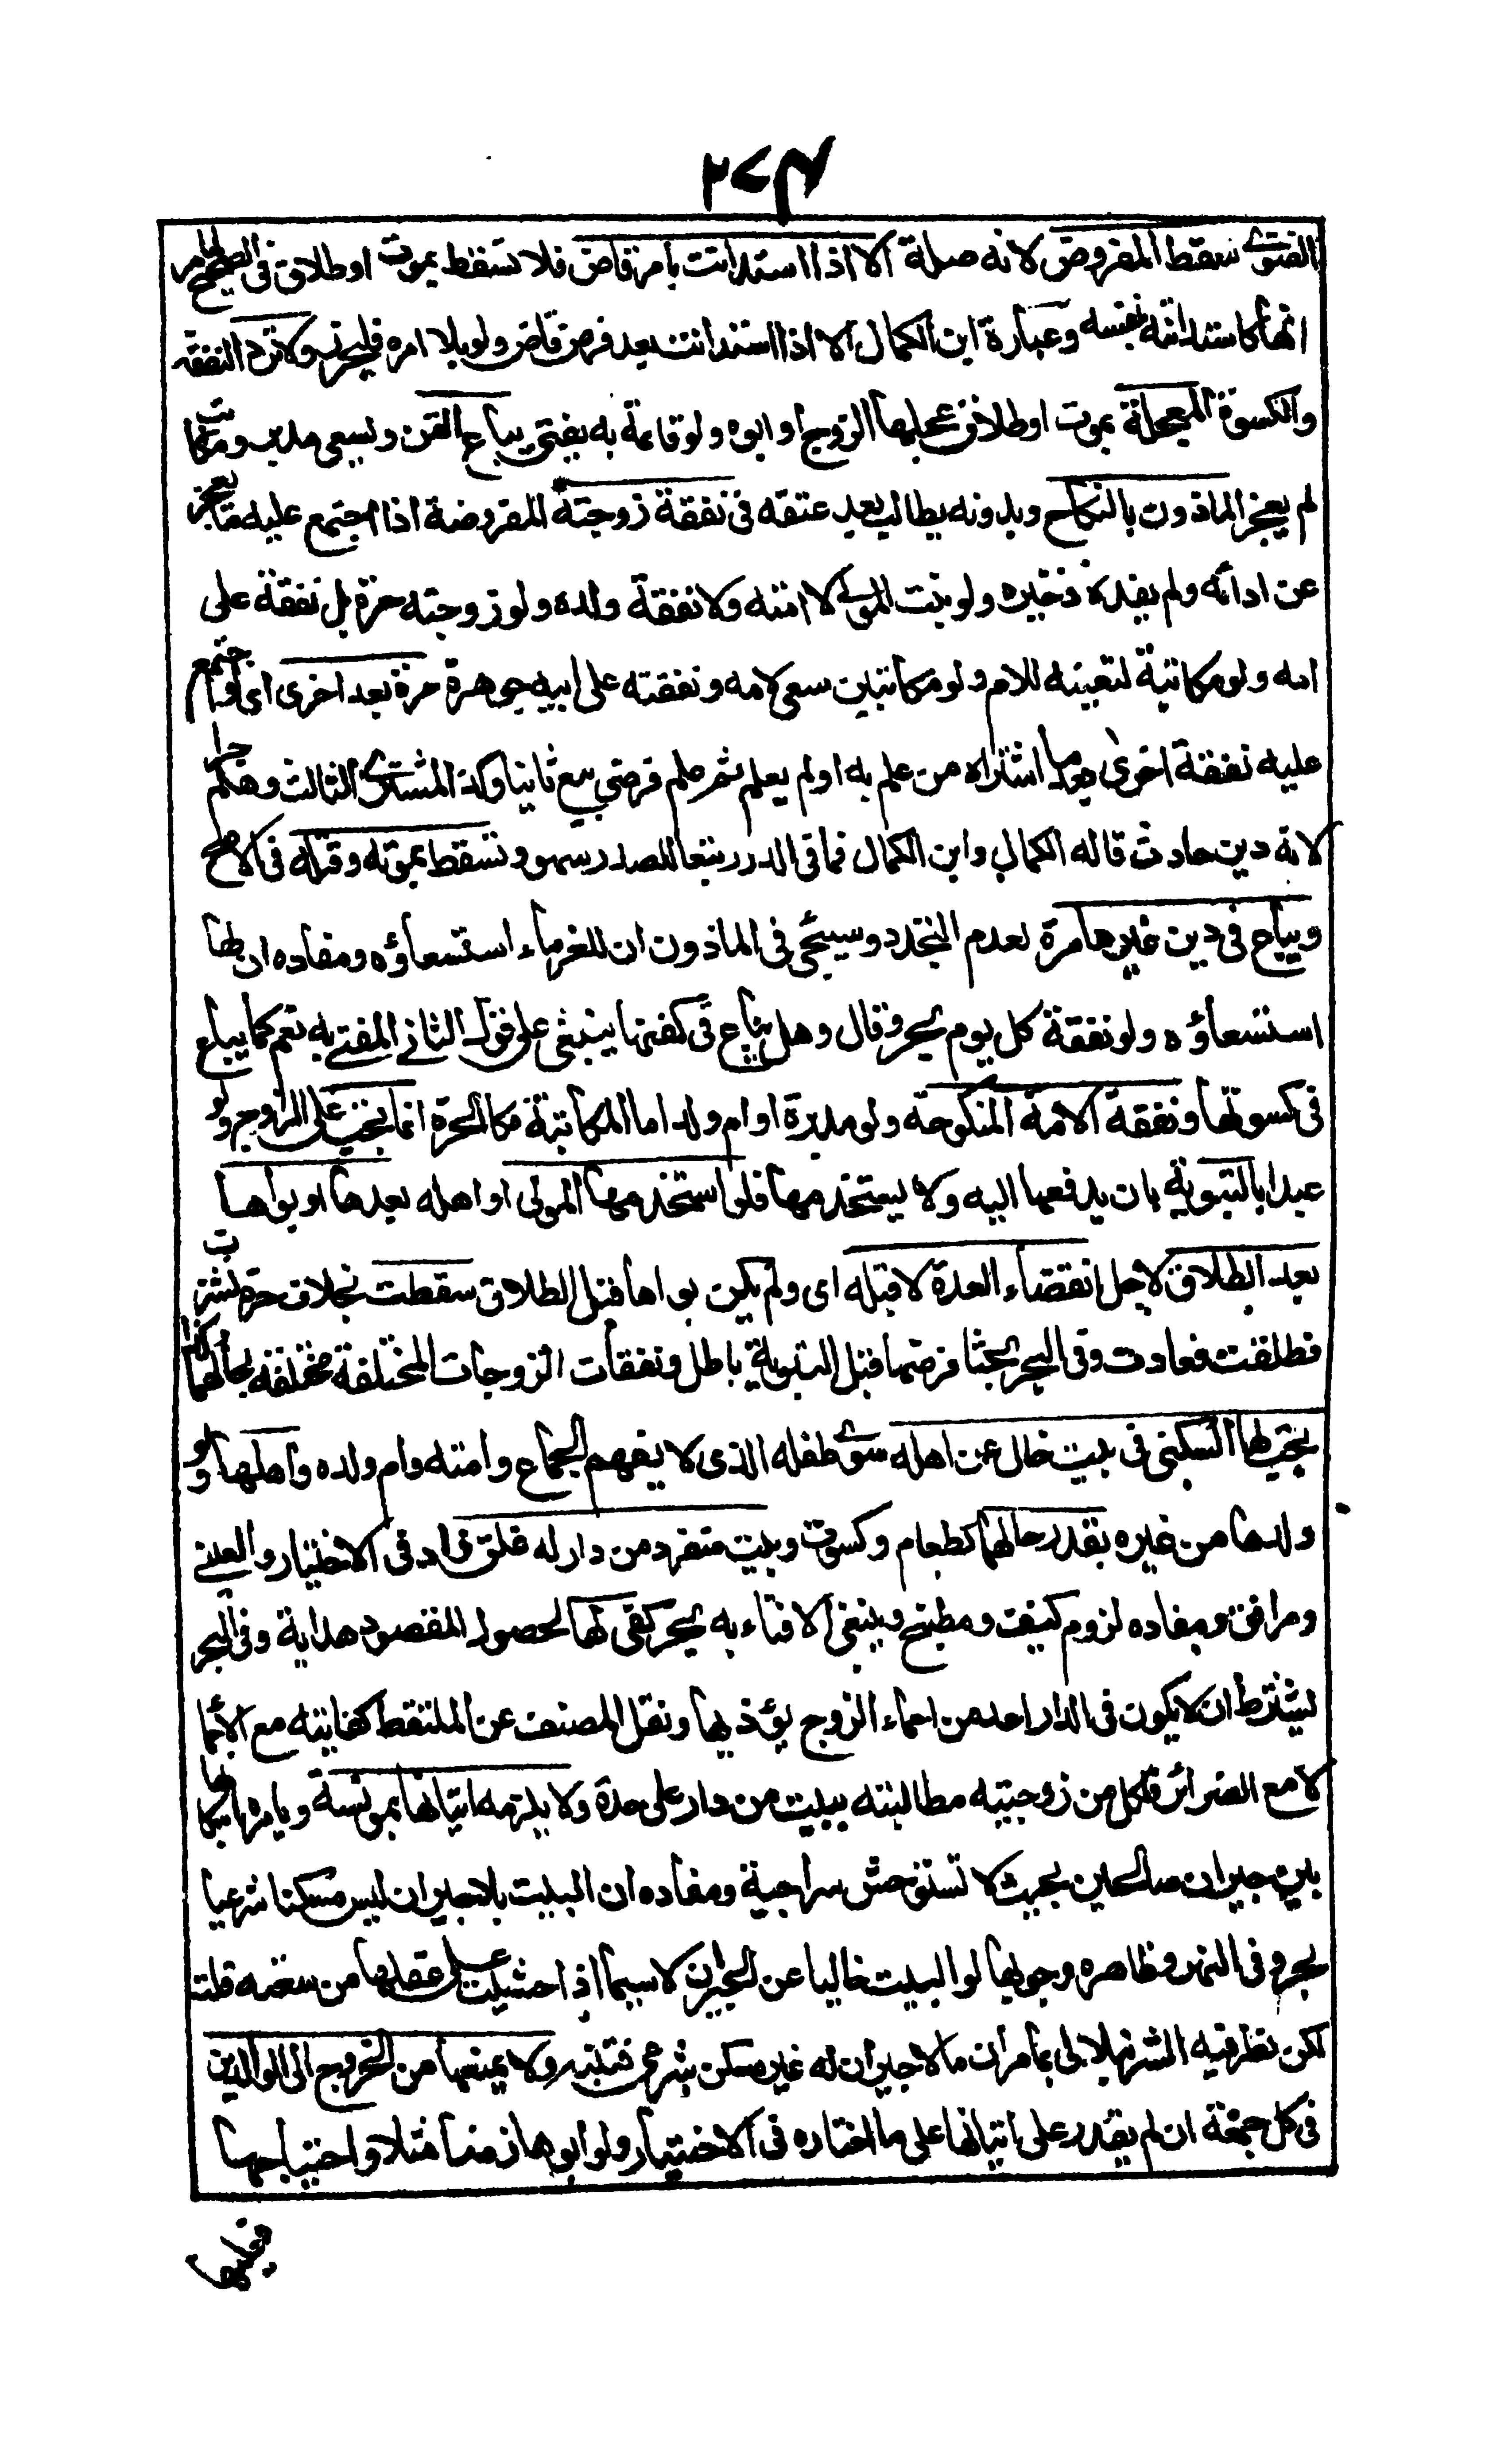 ٢٧٣
الفتوى سقط المفروض لانه صلة الا اذا استدانت بامر قاض فلا تسقط بموت او طلاق في الصحيح لما مر
انها كاستدانته بنفسه وعبارة ابن الكمال الا اذا استدانت بعد فرض قاض ولو بلا امره فليحرر ولا ترد النفقة
والكسوة المعجلة بموت او طلاق عجلها الزوج او ابوه ولو قائمة به يفتى يباع القن ويسعى مدبر ومكاتب
لم يعجز الماذون بالنكاح وبدونه يطالب بعد عتقه في نفقة زوجته المفروضة اذا اجتمع عليه ما يعجز
عن ادائه ولم يفده ولو بنت المولى لا امته ولا نفقة ولده ولو زوجته حرة بل نفقة على
امه ولو مكاتبة لتبعيته للام ولو مكاتبين سعى لامه ونفقته على ابيه جوهرة مرة بعد اخرى اى لو اجتمع
عليه نفقة اخرى بعد ما اشتراه من علم به او لم يعلم ثم علم فرضى بيع ثانيا وكذا المشترى الثالث وهلم جرا
لانه دين حادث قاله الكمال وابن الكمال فما في الدرر تبعا للصدر سهو وتسقط بموته وقتله في الاصح
ويباع في دين غيرها مرة لعدم التجدد وسيجئ في الماذون ان للغرماء استسعاؤه ومفاده ان لها
استسعاؤه ولو نفقة كل يوم بحر وقال وهل يباع في كفنها ينبغى على قول الثاني المفتى به نعم كما يباع
في كسوتها ونفقة الامة المنكوحة ولو مدبرة او ام ولد اما المكاتبة فكالحرة انما تجب على الزوج ولو
عبدا بالتبوية بان يدفعها اليه ولا يستخدمها فلو استخدمها المولى او اهله بعدها او بواها
بعد الطلاق لاجل انقضاء العدة لا قبله اى ولم يكن بواها قبل الطلاق سقطت بخلاف حرة نشزت
فطلقت فعادت وفي البحر بحثا فرضها قبل التبوية باطل ونفقات الزوجات المختلفة مختلفة بحالهما وكذا
تجب لها السكنى في بيت خال عن اهله سوى طفله الذى لا يفهم الجماع وامته وام ولده واهلها ولو
ولدها من غيره بقدر حالهما كطعام وكسوة وبيت منفرد من دار له غلق زاد في الاختيار والعينى
ومرافق ومفاده لزوم كنيف ومطبخ وينبغى الافتاء به بحر كفى لها لحصول المقصود هداية وفي البحر
يشترط ان لا يكون في الدار احد من احماء الزوج يؤذيها ونقل المصنف عن الملتقط كفايته مع الاحما
لا مع الضرائر فلكل من زوجتيه مطالبته ببيت من دار على حدة ولا يلزمه اتيانها بمونسة ويامره باسكانها
بين جيران صالحين بحيث لا تستوحش سراجية ومفاده ان البيت بلا جيران ليس مسكنا شرعيا
بحر وفي النهر وظاهره وجوبها لو البيت خاليا عن الجيران لا سيما اذا خشيت على عقلها من سعته قلت
لكن نظر فيه الشرنبلالى بما مر ان ما لا جيران له غير مسكن شرعى فتنبه ولا يمنعها من الخروج الى الوالدين
في كل جمعة ان لم يقدر على اتيانها على ما اختاره في الاختيار ولو ابوها زمنا مثلا واحتياجها